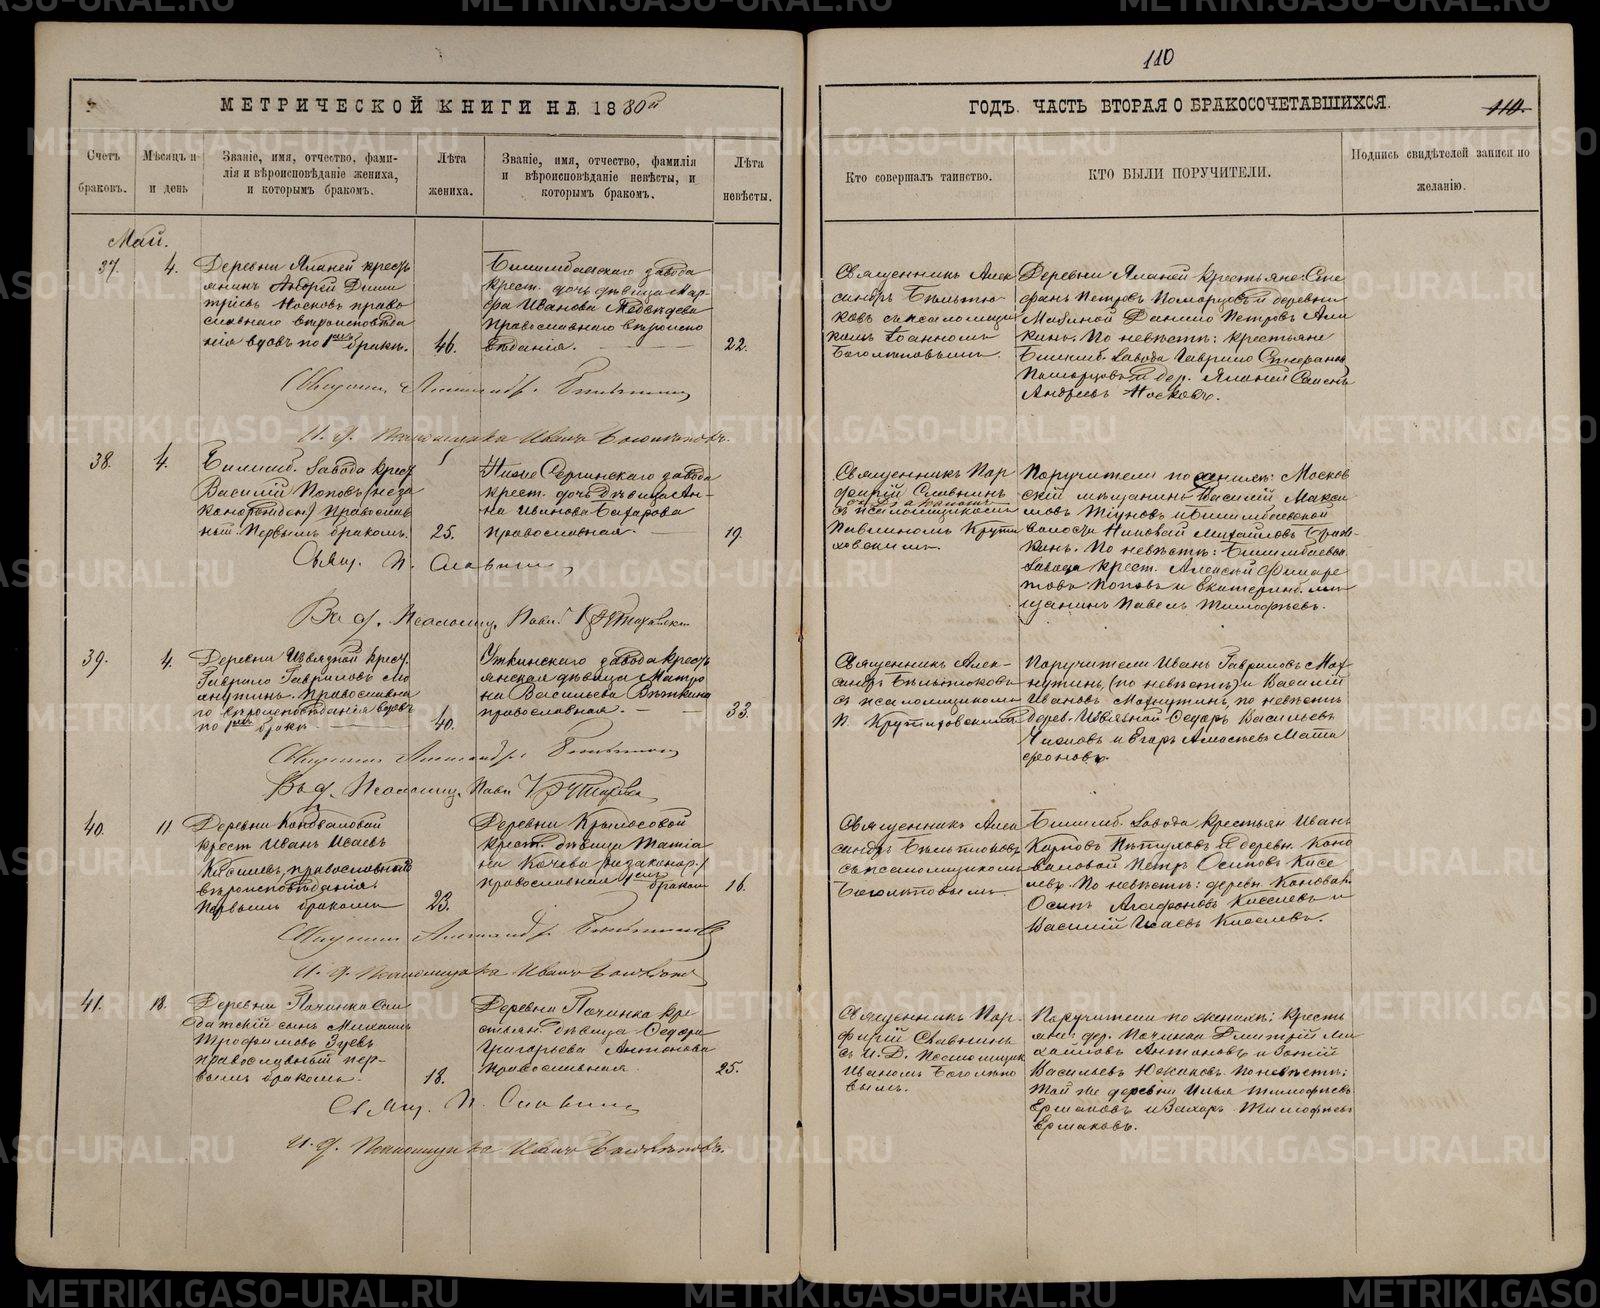 110
МЕТРИЧЕСКОЙ КНИГИ НА 1880й
ГОДЪ. ЧАСТЬ ВТОРАЯ О БРАКОСОЧЕТАВШИХСЯ.
110.
Счетъ браковъ.
Мѣсяцъ и и день
Званіе, имя, отчество, фами-
лія и вѣроисповѣданіе жениха,
и которымъ бракомъ.
Лѣта жениха.
Званіе, имя, отчество, фамилія
и вѣроисповѣданіе невѣсты, и
которымъ бракомъ.
Лѣта невѣсты.
Кто совершалъ таинство.
КТО БЫЛИ ПОРУЧИТЕЛИ.
Подпись свидѣтелей записи по
желанію.
Май.
37.
4.
Деревни Яланей кресть
янинъ Андрей Дими
тріевъ Носковъ право
славнаго вѣроисповѣда
нія вдовъ по 1мъ бракѣ.
46.
Билимбаевскаго завода
крест. дочь дѣвица Мар-
фа Иванова Медвѣдева
православнаго вѣроиспо
вѣданія.
22.
Священникъ Алек
сандръ Бѣльтю
ковъ съ псаломщи
комъ Іоанномъ
Боголѣповымъ.
Деревни Яланей крестьяне: Сте
фанъ Петровъ Поморцовъ и деревни
Данило Петровъ
По невѣстѣ: крестьяне
Билимб. завода Гаврило
Поморцовъ и дер. Яланей
Андреевъ Носковъ.
Священникъ Александръ Бѣльтюковъ
И. д. Псаломщика Иванъ Боголѣповъ.
38.
4.
Билимб. завода крест.
Василій Поповъ (неза
конорожден.) Православ
ный. Первымъ бракомъ.
25.
Нижне Сергинскаго завода
крест. дочь дѣвица Ан-
на Иванова Бахарова
православная.
19
Священникъ Пор
фирій Славнинъ
съ псаломщикомъ
Павлиномъ Крути
ховскимъ.
Поручители по женихѣ: Москов
скій мѣщанинъ Василій Макси
мовъ Тіуновъ и Билимбаевской
волости Николай Михайловъ
По невѣстѣ: Билимбаевск.
завода крест. Алексѣй Филаре
товъ Поповъ и Екатеринб. мѣ
щанинъ Павелъ Тимофѣевъ.
Свящ. П. Славнинъ
В. д. Псаломщ. Павл. Крутиховскій
39.
4.
Деревни Извѣздной крест.
Гаврило Гавриловъ Мо
хнутинъ. Православна
го вѣроисповѣданія вдовъ
по 1мъ бракѣ
40.
Уткинскаго завода кресть
янская дѣвица Матро
на Васильева Вяткина
православная.
33.
Священникъ Алек-
сандръ Бѣльтюковъ
съ псаломщикомъ
П. Крутиховскимъ
Поручители Иванъ Гавриловъ Мох-
нутинъ, (по невѣстѣ) и Василій
Ивановъ Мохнутинъ, по невѣстѣ
дерев. Извѣздной Ѳедоръ Васильевъ
и Егоръ Алексѣевъ Мата
фоновъ.
Священникъ Александръ Бѣльтюковъ
В. д. Псаломщ. Павл. Крутиховск.
40.
11
Деревни Коноваловой
крест. Иванъ Исаевъ
Киселевъ, православнаго
вѣроисповѣданія.
Первымъ бракомъ
23.
Деревни Крылосовой
крест. дѣвица Татіа
на Кочева (незаконор.)
православная 1мъ бракомъ
16.
Священникъ Алек
сандръ Бѣльтюковъ
съ псаломщикомъ
Боголѣповымъ
Билимб. завода крестьян. Иванъ
Карповъ Пѣтуховъ и деревн. Коно
валовой Петръ Осиповъ Кисе
левъ. По невѣстѣ: деревн. Коновал.
Осипъ Агафоновъ Киселевъ и
Василій Исаевъ Киселевъ.
Священникъ Александръ Бѣльтюковъ
И. д. Псаломщика Иванъ Боголѣповъ
41.
18.
Деревни Починка Сол
датскій сынъ Михаилъ
Трофимовъ Зуевъ
православный пер-
вымъ бракомъ.
18.
Деревни Починка кре
стьян. дѣвица Ѳедора
Григорьева Антонова
православная.
25.
Священникъ Пор-
фирій Славнинъ
съ И. Д. Псаломщик
Иваномъ Боголѣпо
вымъ.
Поручители по женихѣ: кресть
яне дер. Починка Дмитрій Ми
хайловъ Антоновъ и
Васильевъ По невѣстѣ:
той же деревни Илья Тимофѣевъ
Ермаковъ и Захаръ Тимофѣевъ
Ермаковъ.
Свящ. П. Славнинъ
И. д. Псаломщика Иванъ Боголѣповъ.
METRIKI.GASO-URAL.RU